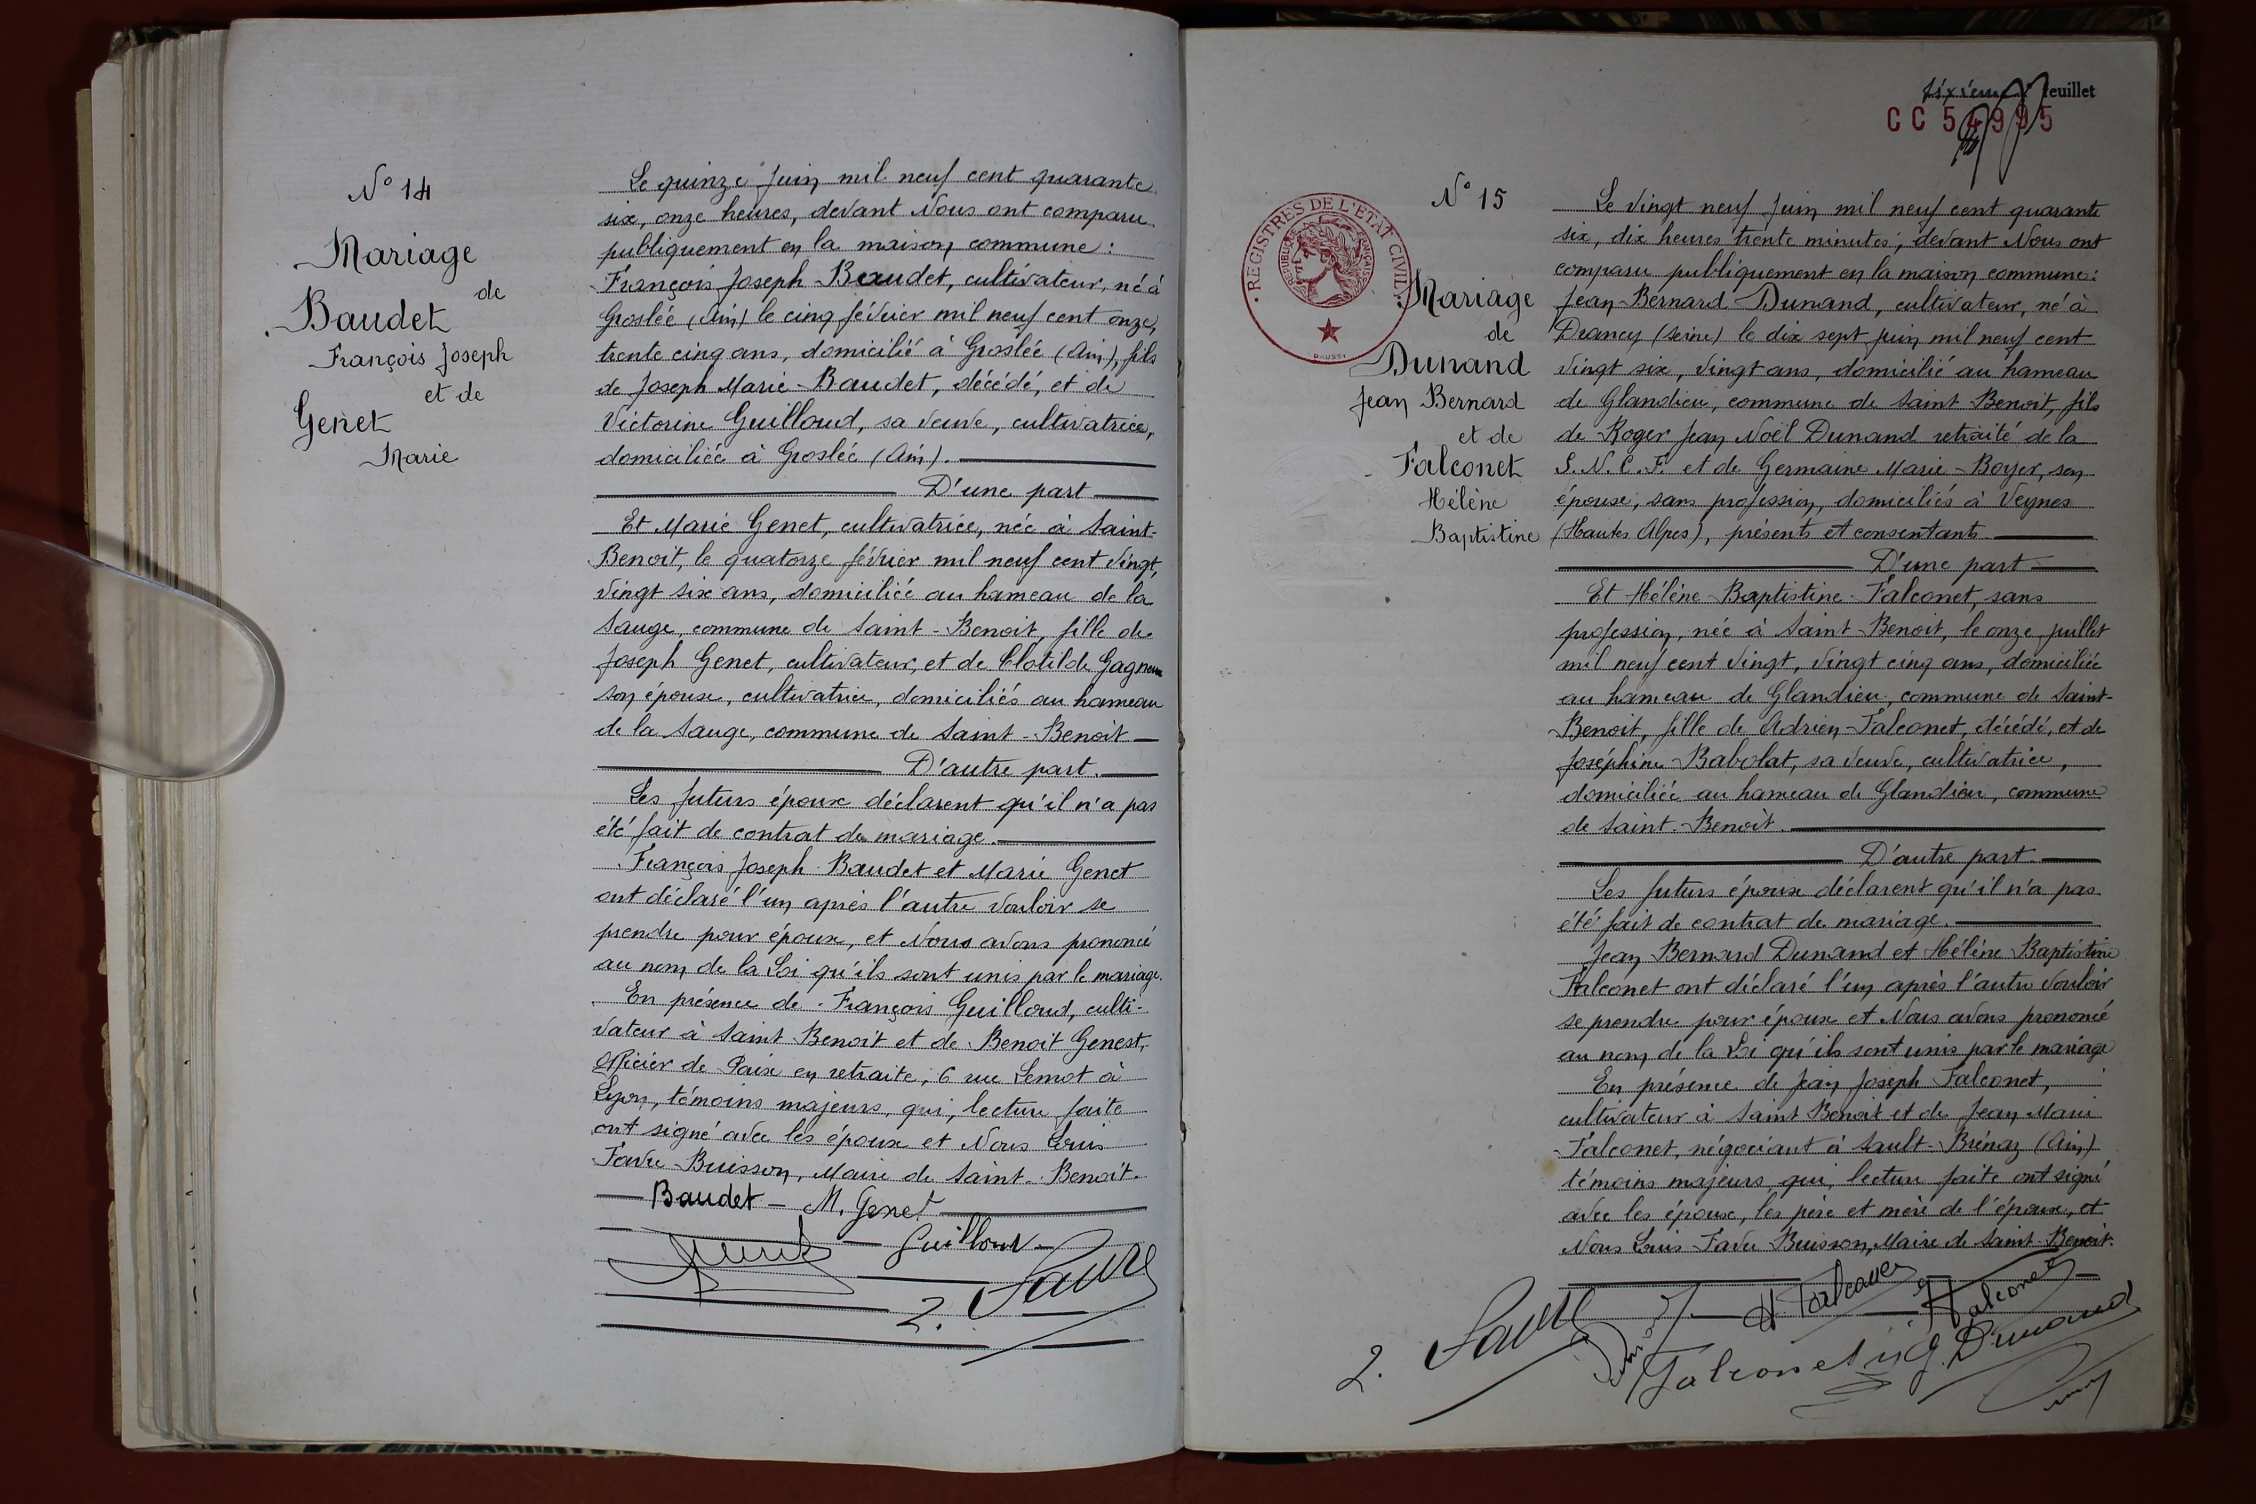 N° 14
Mariage
de
Baudet
François Joseph
et de
Genet
Marie
Le quinze Juin mil neuf cent quarante
six, onze heures, devant Nous ont comparu
publiquement en la maison commune :
François Joseph Baudet, cultivateur, né à
Groslée (Ain) le cinq février mil neuf cent onze,
trente cinq ans, domicilié à Groslée (Ain), fils
de Joseph Marie Baudet, décédé, et de
Victorine Guilloud, sa veuve, cultivatrice,
domiciliée à Groslée (Ain).
D'une part
Et Marie Genet, cultivatrice, née à Saint-
Benoit, le quatorze février mil neuf cent vingt,
vingt six ans, domiciliée au hameau de la
Sauge, commune de Saint-Benoit, fille de
Joseph Genet, cultivateur, et de Clotilde Gagneux
son épouse, cultivatrice, domiciliés au hameau
de la Sauge, commune de Saint-Benoit
D'autre part.
Les futurs époux déclarent qu'il n'a pas
été fait de contrat de mariage.
François Joseph Baudet et Marie Genet
ont déclaré l'un après l'autre vouloir se
prendre pour époux, et Nous avons prononcé
au nom de la Loi qu'ils sont unis par le mariage.
En présence de François Guilloud, culti-
vateur à Saint Benoit et de Benoit Genest,
Officier de Paix en retraite, 6 rue Lemot à
Lyon, témoins majeurs, qui, lecture faite
ont signé avec les époux et Nous Louis
Favre-Buisson, Maire de Saint-Benoit.
Baudet - M. Genet
Guilloud
L. Favre
sixième feuillet
CC 54995
REGISTRES DE L'ETAT CIVIL
REPUBLIQUE FRANÇAISE
N° 15
Mariage
de
Dunand
Jean Bernard
et de
Falconet
Hélène
Baptistine
Le vingt neuf Juin mil neuf cent quarante
six, dix heures trente minutes, devant Nous ont
comparu publiquement en la maison commune :
Jean Bernard Dunand, cultivateur, né à
Drancy (Seine) le dix sept juin mil neuf cent
vingt six, vingt ans, domicilié au hameau
de Glandieu, commune de Saint Benoit, fils
de Roger Jean Noël Dunand retraité de la
S.N.C.F. et de Germaine Marie Boyer, son
épouse, sans profession, domiciliés à Veynes
(Hautes Alpes), présents et consentants
D'une part
Et Hélène Baptistine Falconet, sans
profession, née à Saint Benoit, le onze juillet
mil neuf cent vingt, vingt cinq ans, domiciliée
au hameau de Glandieu, commune de Saint-
Benoit, fille de Adrien Falconet, décédé, et de
Joséphine Babolat, sa veuve, cultivatrice,
domiciliée au hameau de Glandieu, commune
de Saint-Benoit.
D'autre part.
Les futurs époux déclarent qu'il n'a pas
été fait de contrat de mariage.
Jean Bernard Dunand et Hélène Baptistine
Falconet ont déclaré l'un après l'autre vouloir
se prendre pour époux et Nous avons prononcé
au nom de la Loi qu'ils sont unis par le mariage
En présence de Jean Joseph Falconet,
cultivateur à Saint Benoit et de Jean Marie
Falconet, négociant à Sault-Brénaz (Ain)
témoins majeurs, qui, lecture faite ont signé
avec les époux, les père et mère de l'époux, et
Nous Louis Favre Buisson, Maire de Saint-Benoit.
H. Falconet
Falconet
L. Favre
Falconet
G. Dunand